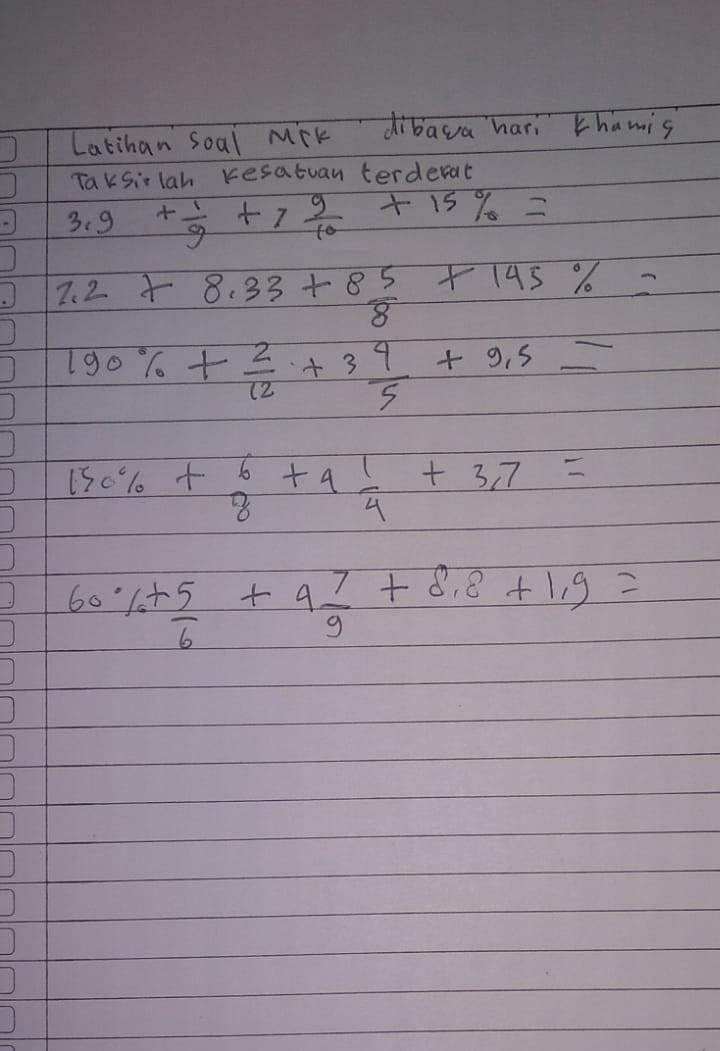 Latihan soal MTK dibawa hari khamis
Taksirlah kesatuan terdekat
3,9 + 1/9 + 7 9/10 + 15 % =
7.2 + 8.33 + 8 5/8 + 145 % =
190 % + 2/12 + 3 4/5 + 9,5 =
150 % + 6/8 + 4 1/4 + 3,7 =
60 % + 5/6 + 9 7/9 + 8.8 + 1,9 =